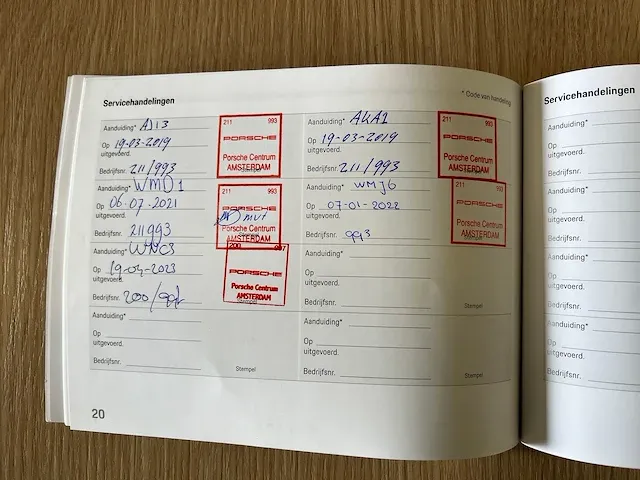 Servicehandelingen
* Code van handeling
Aanduiding* AJ13
Op 19-03-2019
uitgevoerd.
Bedrijfsnr. 211/993
211 993
PORSCHE
Porsche Centrum
AMSTERDAM
Aanduiding* AKA1
Op 19-03-2019
uitgevoerd.
Bedrijfsnr. 211/993
211 993
PORSCHE
Porsche Centrum
AMSTERDAM
Aanduiding* WMD1
Op 06-07-2021
uitgevoerd.
Bedrijfsnr. 211993
211 993
PORSCHE
Porsche Centrum
AMSTERDAM
Aanduiding* WMJ6
Op 07-01-2022
uitgevoerd.
Bedrijfsnr. 993
211 993
PORSCHE
Porsche Centrum
AMSTERDAM
Aanduiding* WNC3
Op 19-04-2023
uitgevoerd.
Bedrijfsnr. 200/997
200 997
PORSCHE
Porsche Centrum
AMSTERDAM
Aanduiding*
Op
uitgevoerd.
Bedrijfsnr.
Stempel
Aanduiding*
Op
uitgevoerd.
Bedrijfsnr.
Stempel
Aanduiding*
Op
uitgevoerd.
Bedrijfsnr.
Stempel
20
Servicehandelingen
Aanduiding*
Op
uitgevoerd.
Bedrijfsnr.
Aanduiding*
Op
uitgevoerd.
Bedrijfsnr.
Aanduiding*
Op
uitgevoerd.
Bedrijfsnr.
Aanduiding*
Op
uitgevoerd.
Bedrijfsnr.